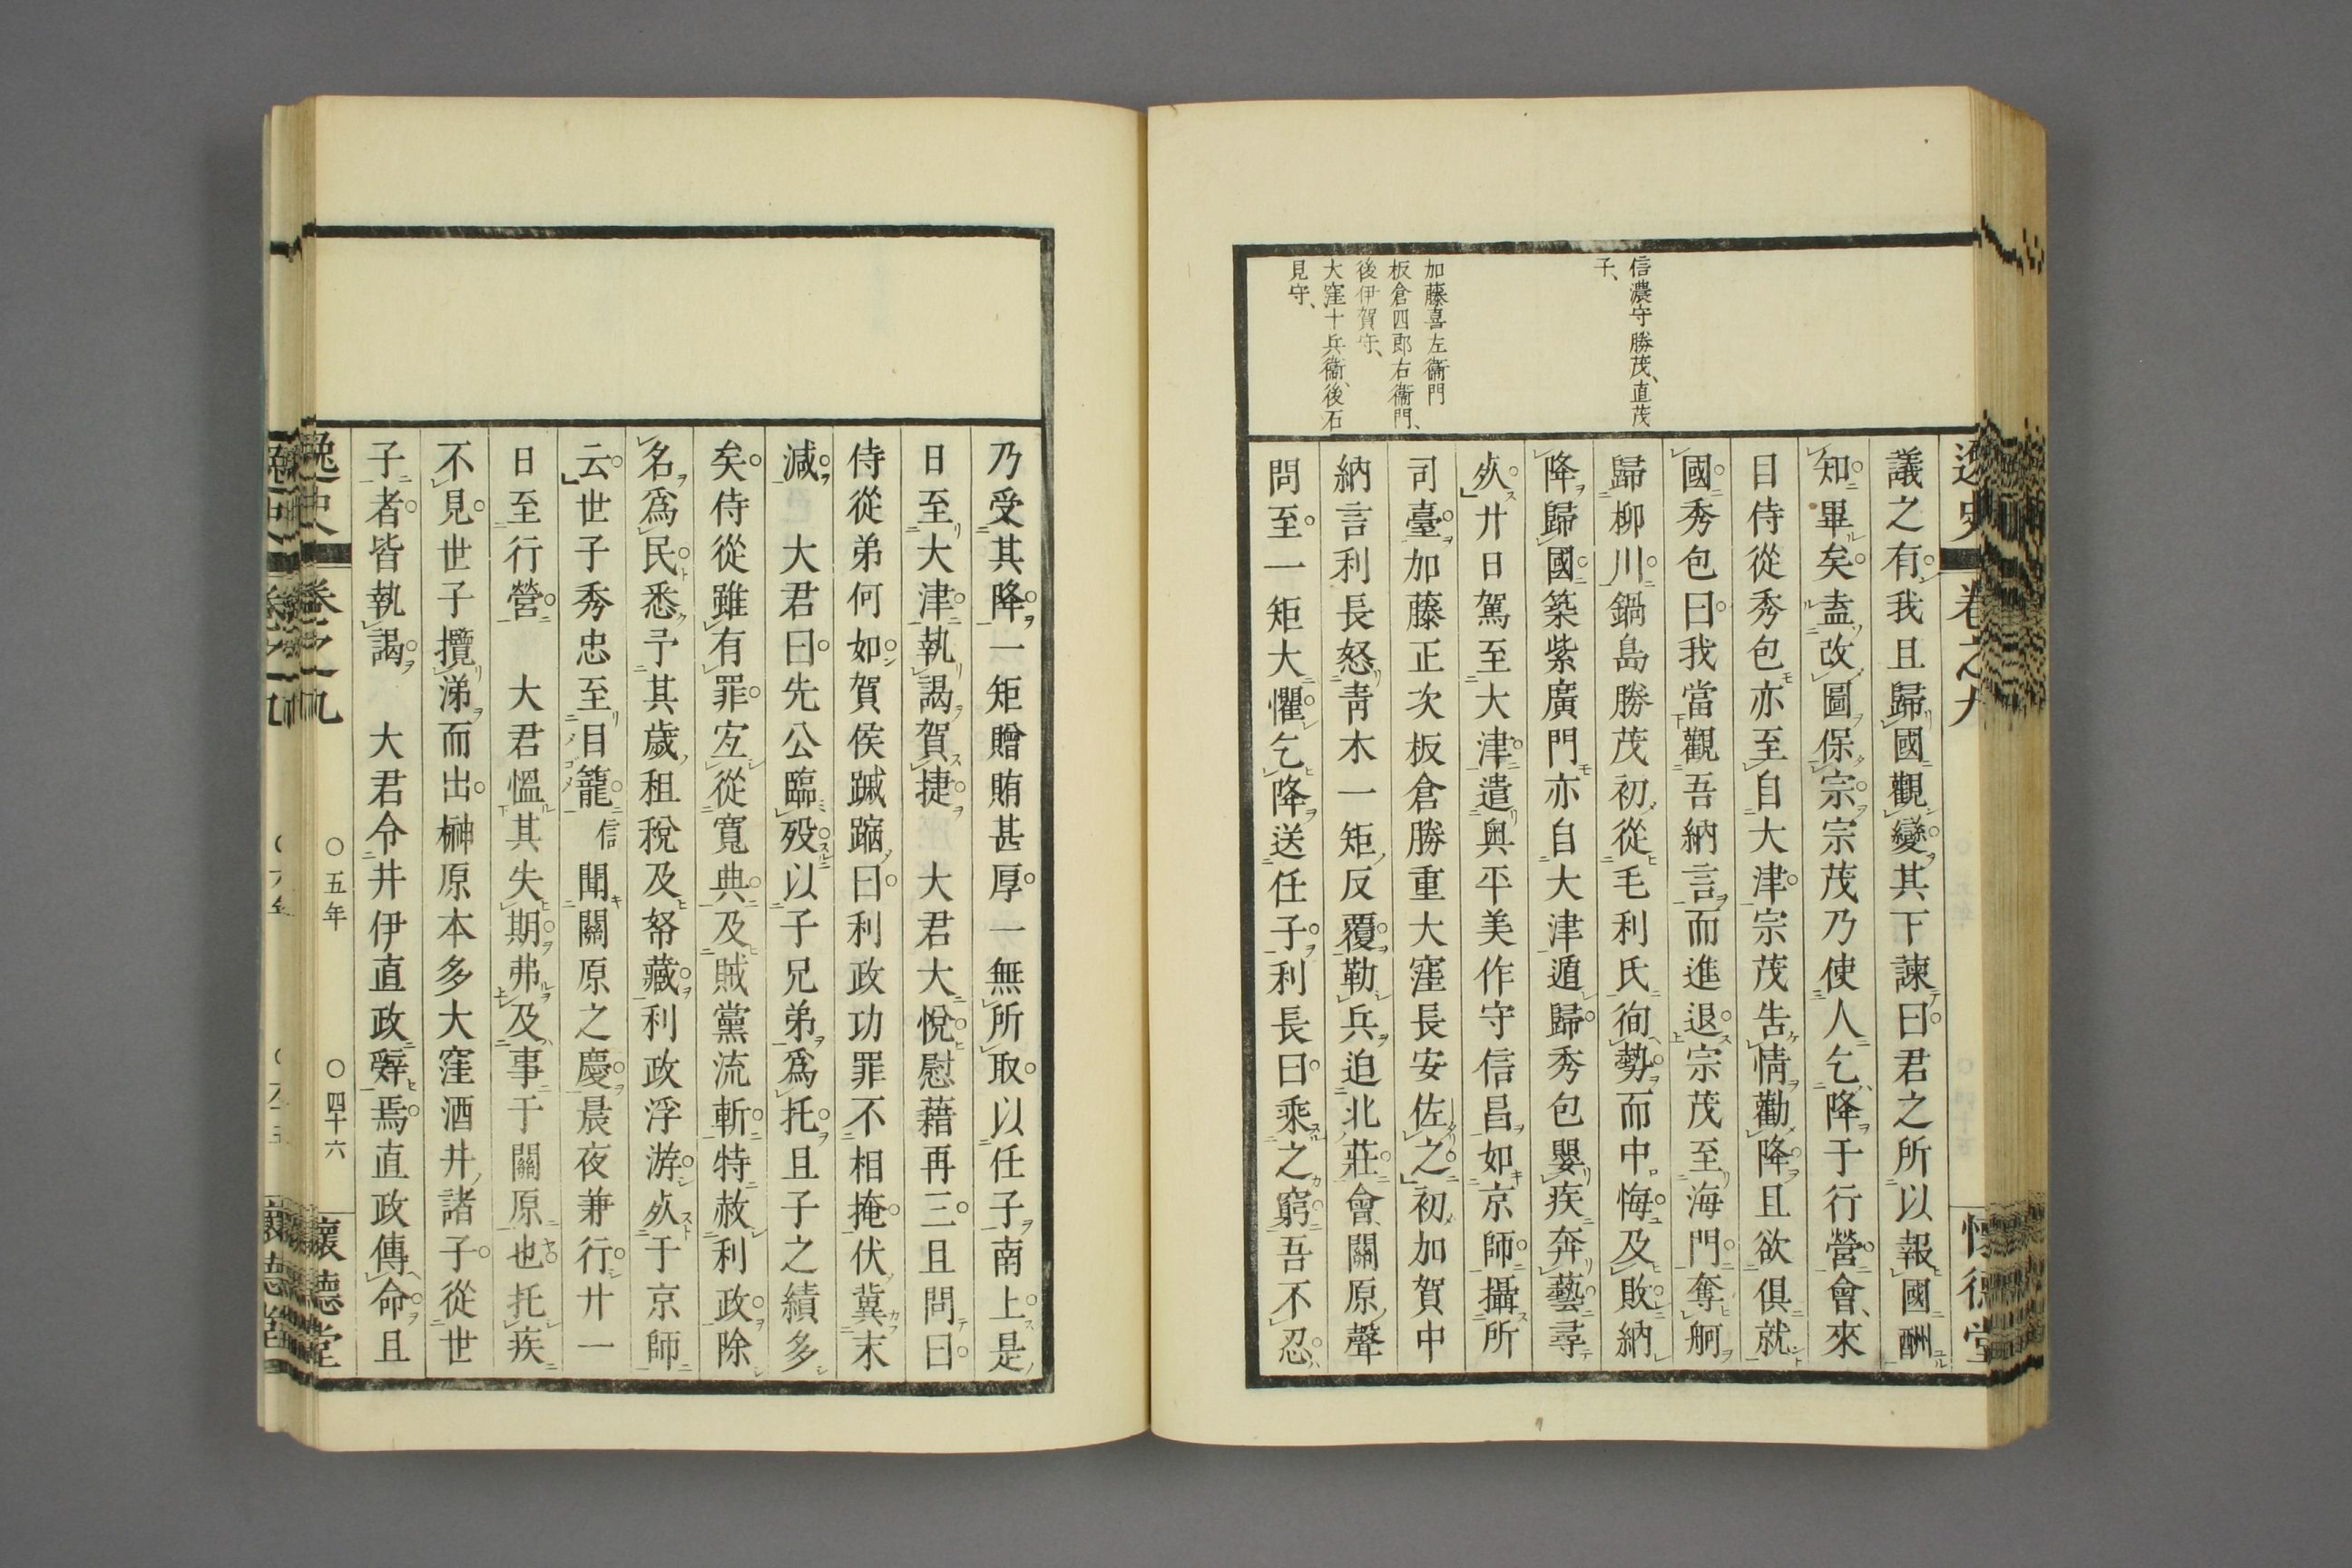 逸史 卷之九 懷德堂
信濃守勝茂、直茂
子、
加藤喜左衞門
板倉四郎右衞門、
後伊賀守、
大窪十兵衞、後石
見守、
議之有我且歸國觀變其下諫曰君之所以報國酬
知畢矣盍改圖保宗宗茂乃使人乞降于行營會、來
目侍從秀包亦至自大津宗茂告情勸降且欲俱就
國秀包曰我當觀吾納言而進退宗茂至海門奪舸
歸柳川鍋島勝茂初從毛利氏徇勢而中悔及敗納
降歸國築紫廣門亦自大津遁歸秀包嬰疾奔藝尋
㱙廿日駕至大津遣奥平美作守信昌如京師攝所
司臺加藤正次板倉勝重大窪長安佐之初加賀中
納言利長怒靑木一矩反覆勒兵迫北莊會關原聲
問至一矩大懼乞降送任子利長曰乘之窮吾不忍
乃受其降一矩贈賄甚厚一無所取以任子南上是
日至大津執謁賀捷 大君大悅慰藉再三且問曰
侍從弟何如賀侯踧踖曰利政功罪不相掩伏冀末
減 大君曰先公臨歿以子兄弟爲托且子之績多
矣侍從雖有罪宐從寬典及賊黨流斬特赦利政除
名爲民悉予其歲租稅及帑藏利政浮游㱙于京師
云世子秀忠至目籠信聞關原之慶晨夜兼行廿一
日至行營 大君慍其失期弗及事于關原也托疾
不見世子攬涕而出榊原本多大窪酒井諸子從世
子者皆執謁 大君令井伊直政辭焉直政傳命且
逸史 卷之九 ○五年 ○四十六 懷德堂